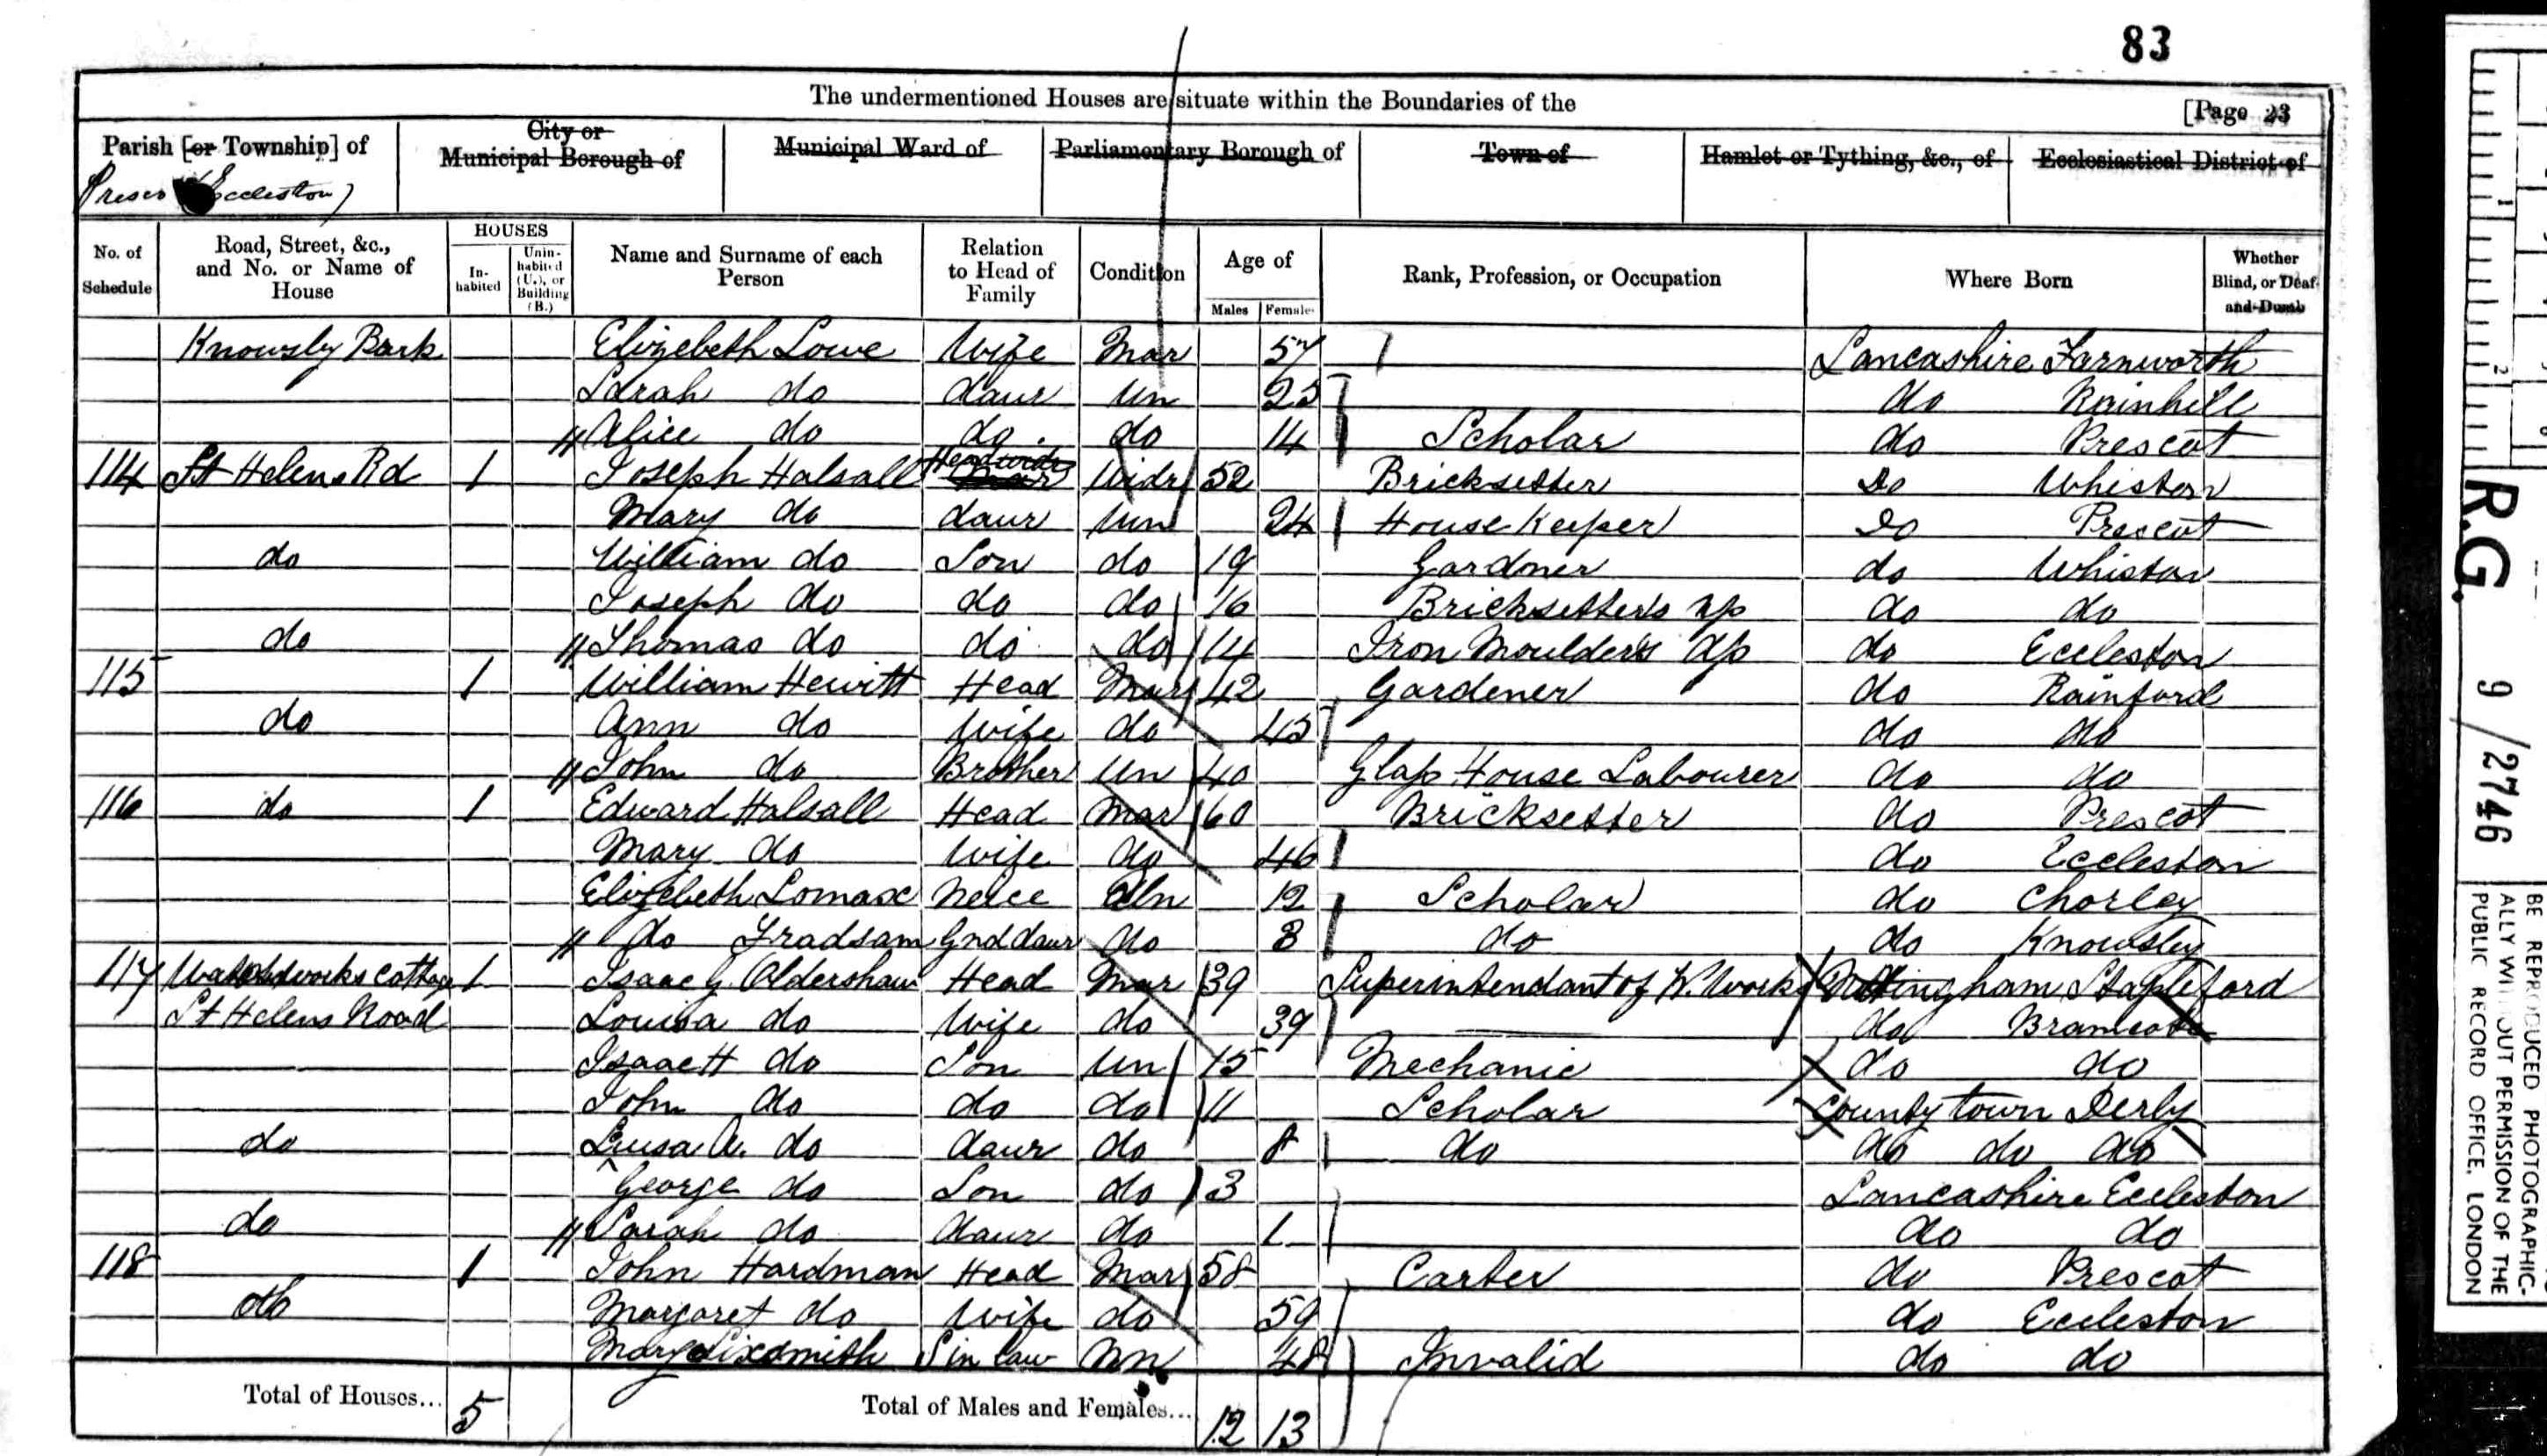 83
The undermentioned Houses are situate within the Boundaries of the
[Page 23
Parish [or Township] of
City or Municipal Borough of
Municipal Ward of
Parliamentary Borough of
Town of
Hamlet or Tything, &c., of
Ecclesiastical District of
Eccleston)
No. of Schedule
Road, Street, &c., and No. or Name of House
HOUSES
In-habited
Unin-habited (U.), or Building (B.)
Name and Surname of each Person
Relation to Head of Family
Condition
Age of
Males Females
Rank, Profession, or Occupation
Where Born
Whether Blind, or Deaf-and-Dumb
Knowsly Park Elizebeth Lowe Wife Mar 57 Lancashire Farnworth
Sarah do daur Un 25 do Rainhill
Alice do do do 14 Scholar do Prescot
114 St Helens Rd 1 Joseph Halsall Head Widr 52 Bricksetter do Whiston
Mary do daur Un 24 House Keeper do Prescot
do William do Son do 19 Gardner do Whiston
Joseph do do do 16 Bricksetters Ap do do
do Thomas do do do 14 Iron Moulders Ap do Eccleston
115 1 William Hewitt Head Mar 42 Gardener do Rainford
do Ann do Wife do 45 do do
John do Brother Un 40 Glass House Labourer do do
116 do 1 Edward Halsall Head Mar 60 Bricksetter do Prescot
Mary do Wife do 46 do Eccleston
Elizebeth Lomax Neice Un 12 Scholar do Chorley
do Gnd daur do 8 do do Knowsley
117 cottage 1 Isaac G Oldershaw Head Mar 39 Superintendant of W. Works Nottingham Stapleford
St Helens Road Louisa do Wife do 39 do Bramcote
Isaac H do Son Un 15 Mechanic do do
John do do do 11 Scholar County town Derby
do Luisa A. do daur do 8 do do do do
George do Son do 3 Lancashire Eccleston
do Sarah do daur do 1 do do
118 1 John Hardman Head Mar 58 Carter do Prescot
do Margaret do Wife do 59 do Eccleston
Mary Sixsmith S in law Un 48 Invalid do do
Total of Houses... 5
Total of Males and Females... 12 13
R.G. 9/2746
BE REPRODUCED PHOTOGRAPHIC-
ALLY WITHOUT PERMISSION OF THE
PUBLIC RECORD OFFICE, LONDON